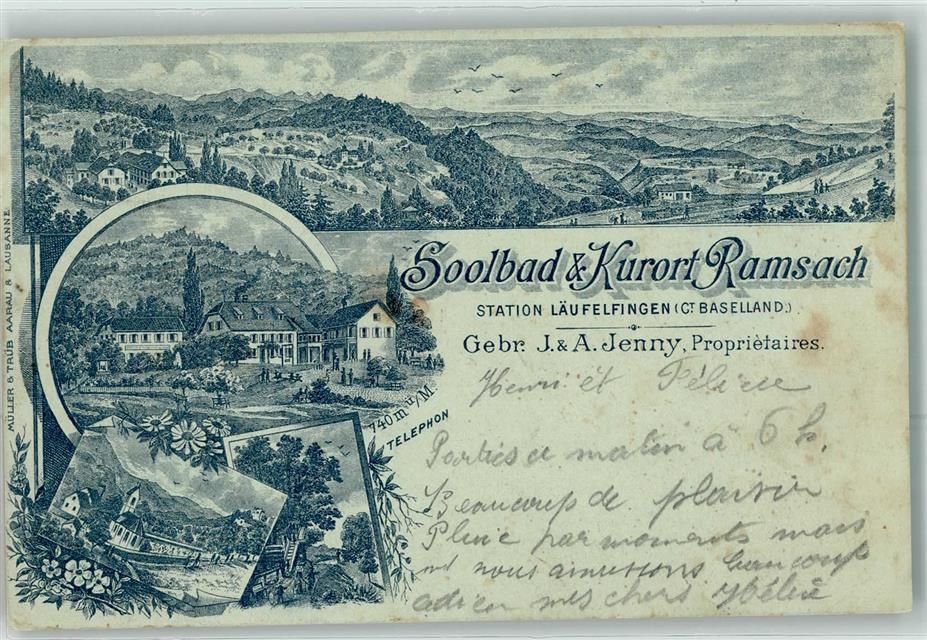 Soolbad & Kurort Ramsach
STATION LÄUFELFINGEN (CT. BASELLAND.)
Gebr. J. & A. Jenny, Propriètaires.
740 m ü/M.
TELEPHON
MÜLLER & TRÜB AARAU & LAUSANNE
Henri et
Parties ce matin à 6 h.
Beaucoup de plaisir
Pluie par moments mais
nous amusons beaucoup
mes chers